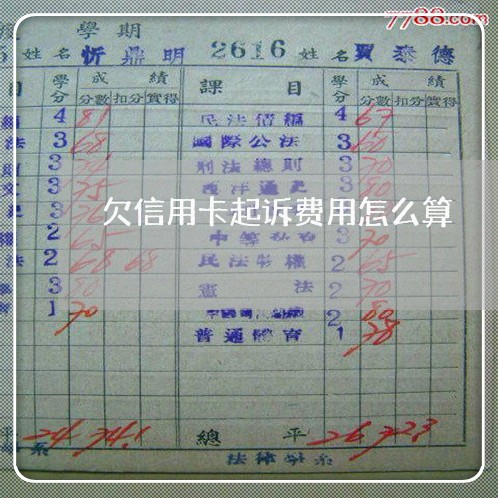 7788.com
學期
姓名 忻鼎明 2616 姓名 賈泰德
目 學分 成績 分數 扣分 實得 課目 學分 成績 分數 扣分 實得
4 81 民法債編 4 67
法 3 68 國際公法 3 60
3 刑法總則 3 70
3 75 西洋通史 3 80
欠信用卡起诉费用怎么算
2 65 3 70
法 2 68 68 民法物權 2 65
3 80 憲法 2 70
1 70 2 80
普通體育 1 78
平 24 74.1 總平 26 72.3
系 法律學系